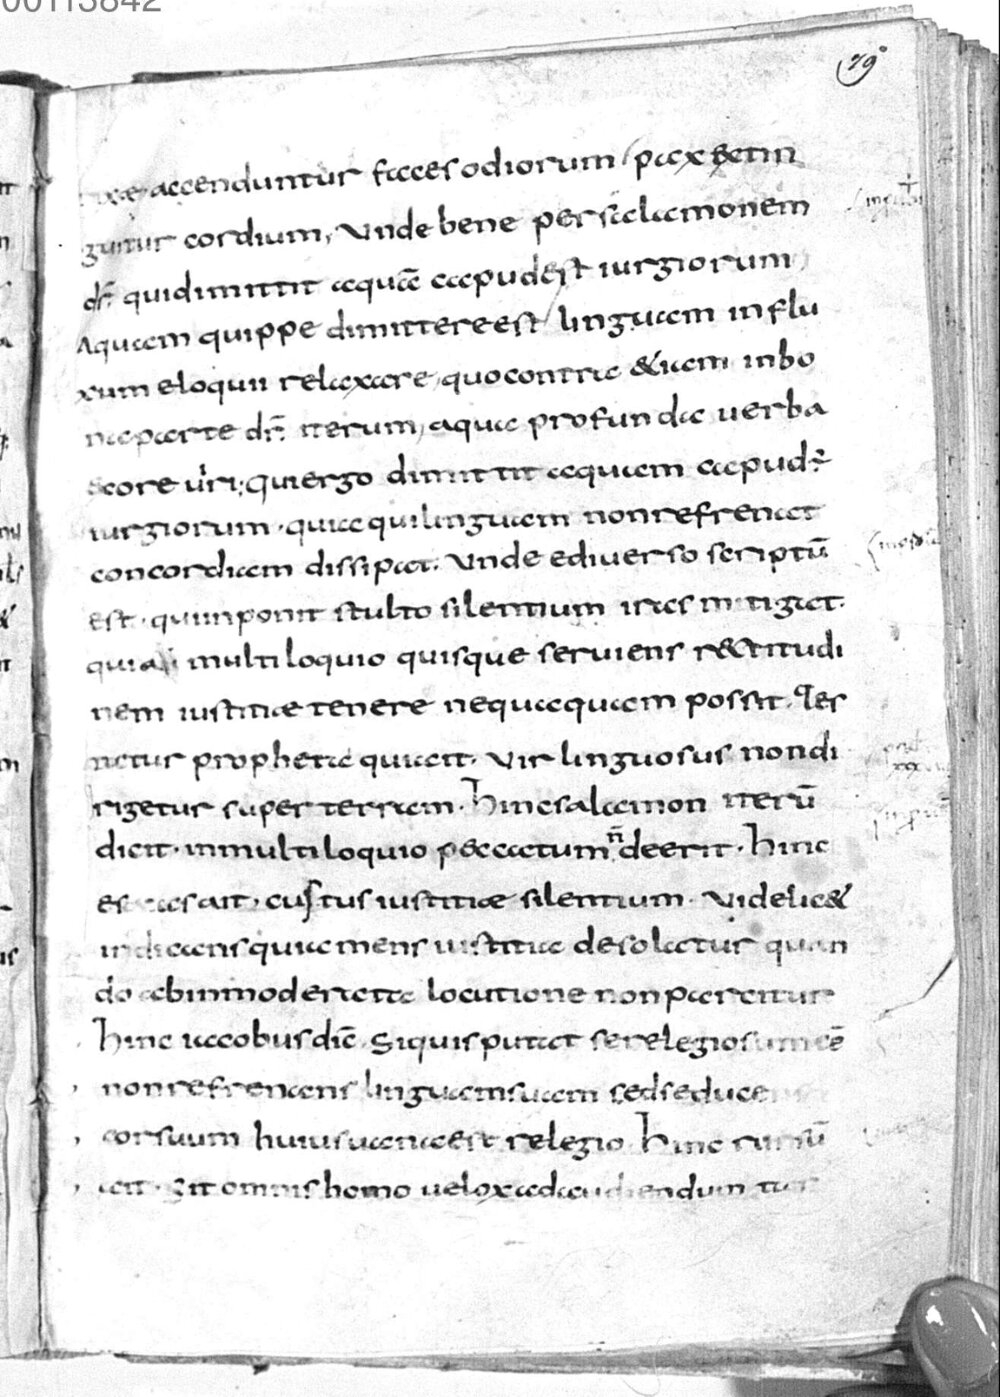 00113842
79
rixae accenduntur faces odiorum pax extin
guitur cordium, Unde bene per salamonem
dr̄ quidimittit aquā caput est iurgiorum,
Aquam quippe dimittere est linguam influ
xum eloquii relaxare, quo contra & iam inbo
na parte dr̄. iterum, aqua profunda uerba
ex ore uiri; qui ergo dimittit aquam caput ē
iurgiorum · quia qui linguam non refrenat
concordiam dissipat. Unde ediuerso scriptū
est · qui inponit stulto silentium iras mitigat.
quia multiloquio quisque seruiens r&titudi
nem iustitiae tenere nequaquam possit. Tes
tatur propheta quia ait. Vir linguosus non di
rigetur super terram. Hinc salamon iterū
dicit · inmultiloquio peccatum n̄ deerit · hinc
esaias ait, custus iustitiae silentium. Videlic&
indicans quia mens iustitia desolatur quan
do ab inmoderata locutione non parcitur
hinc iacobus dic̄. Siquis putat se relegiosum eē
non refrenans linguam suam sed seducens
cor suum huius uana est relegio. Hinc rursū
ait. Sit omnis homo uelox ad audiendum tar